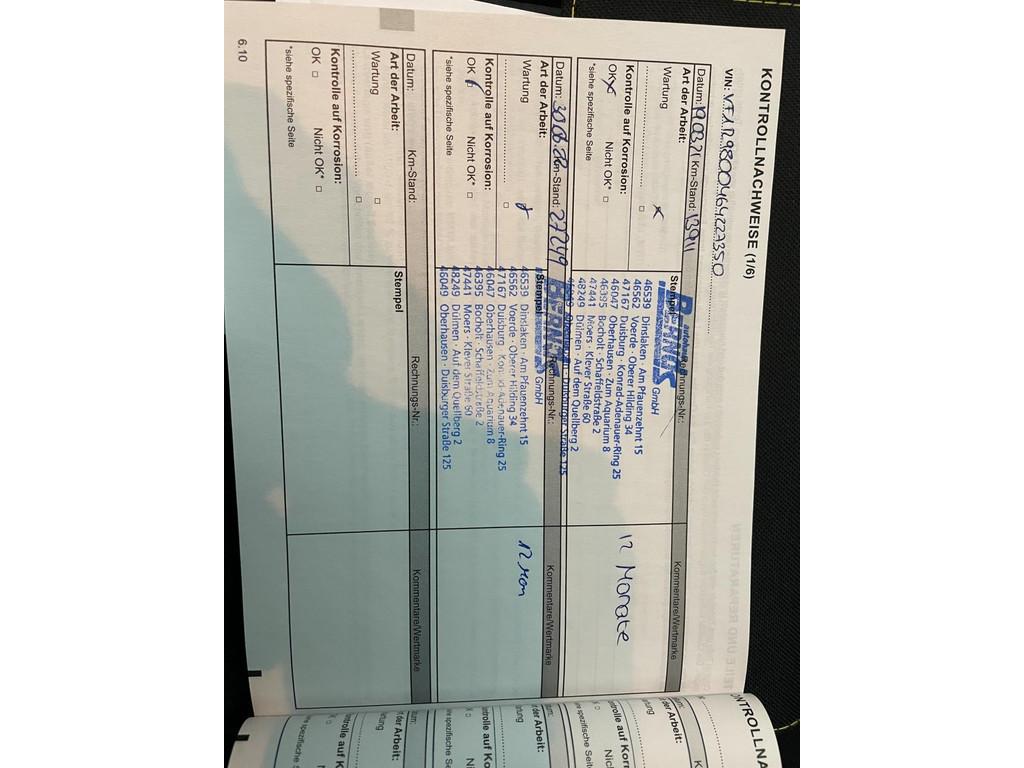 KONTROLLNACHWEISE (1/6)
VIN: VF1R9800464227350
Datum: 190321 Km-Stand: 13911
Rechnungs-Nr.:
Kommentare/Wertmarke
Art der Arbeit:
Wartung x
Kontrolle auf Korrosion:
OK x Nicht OK* □
*siehe spezifische Seite
Stempel
autohaus
BERNDS GmbH
46539 Dinslaken · Am Pfauenzehnt 15
46562 Voerde · Oberer Hilding 34
47167 Duisburg · Konrad-Adenauer-Ring 25
46047 Oberhausen · Zum Aquarium 8
46395 Bocholt · Schaffeldstraße 2
47441 Moers · Klever Straße 60
48249 Dülmen · Auf dem Quellberg 2
46049 Oberhausen · Duisburger Straße 125
12 Monate
Datum: Km-Stand: 27249
Rechnungs-Nr.:
Kommentare/Wertmarke
Art der Arbeit:
Wartung
Kontrolle auf Korrosion:
OK Nicht OK* □
*siehe spezifische Seite
Stempel
BERNDS GmbH
46539 Dinslaken · Am Pfauenzehnt 15
46562 Voerde · Oberer Hilding 34
47167 Duisburg · Konrad-Adenauer-Ring 25
46047 Oberhausen · Zum Aquarium 8
46395 Bocholt · Schaffeldstraße 2
47441 Moers · Klever Straße 60
48249 Dülmen · Auf dem Quellberg 2
46049 Oberhausen · Duisburger Straße 125
12 Mon
Datum: Km-Stand:
Rechnungs-Nr.:
Kommentare/Wertmarke
Art der Arbeit:
Wartung □
Kontrolle auf Korrosion:
OK □ Nicht OK* □
*siehe spezifische Seite
Stempel
6.10